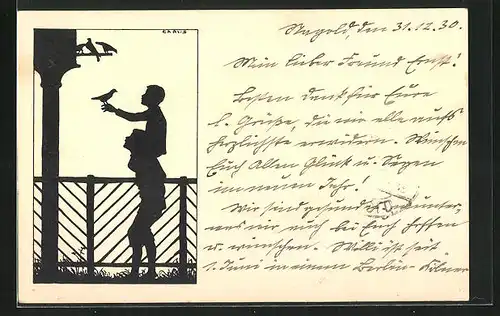 CARUS
Nagold, den 31.12.30.
Mein lieber Freund Ernst!
Besten Dank für Eure
l. Grüße, die wir alle aufs
herzlichste erwidern. Wünschen
Euch Allen Glück u. Segen
im neuen Jahr!
Wir sind gesund u. munter
was wir auch bei Euch hoffen
u. wünschen. Willi ist seit
1. Juni in einem Berlin-Kölner